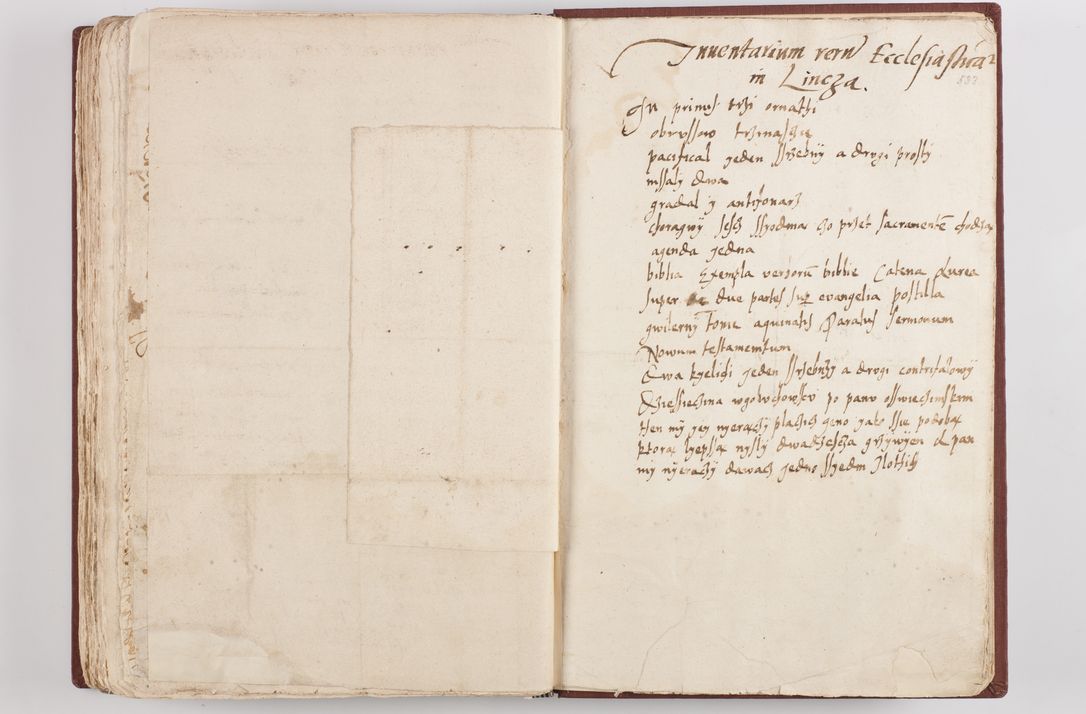 Inuentarium rerū Ecclesiasticar
533
in Lincza.
In primis trzi ornathi
obrussow trzinascie
pacifical jeden ssrzebny a drugi prosty
mssaly dwa
gradal y antifonarz
choragwy sesc ssyodma czo przet sacramentē chodza
agenda jedna
biblia Exempla versorū biblie Catena Aurea
super due partes sup evangelia postilla
gwilerny Tome aquinatis Paratus sermonum
Nowum testamentum
Dwa kyelichi jeden ssrzebny a drugi contrifalowy
Dziessieczina po panu osswieczimskem
then my jey nyeraczy placzicz geno jako ssie podoba
ktora lyepssa nysly dwadziescza grzywyen A pan
my nyeraczy dawacz jedno ssyedm zlottich